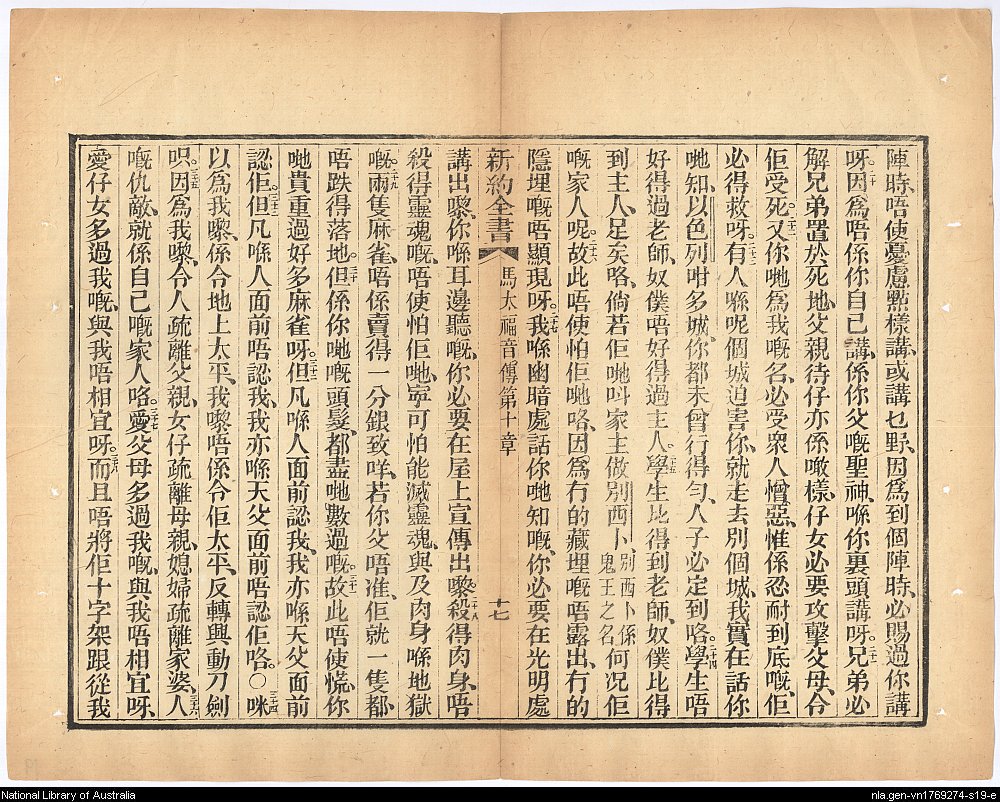 陣時、唔使憂慮點樣講、或講乜野、因爲到個陣時、必賜過你講
呀。二十因爲唔係你自己講、係你父嘅聖神、喺你裏頭講呀。二十一兄弟必
解兄弟置於死地、父親待仔亦係噉樣、仔女必要攻擊父母、令
佢受死。二十二又你哋爲我嘅名、必受衆人憎惡、惟係忍耐到底嘅、佢
必得救呀。二十三有人喺呢個城迫害你、就走去別個城、我實在話你
哋知、以色列咁多城、你都未曾行得勻、人子必定到咯。二十四學生唔
好得過老師、奴僕唔好得過主人。二十五學生比得到老師、奴僕比得
到主人、足矣咯、倘若佢哋呌家主做別西卜、別西卜係鬼王之名何况佢
嘅家人呢。二十六故此唔使怕佢哋咯、因爲冇的藏埋嘅唔露出、冇的
隱埋嘅唔顯現呀。二十七我喺幽暗處話你哋知嘅、你必要在光明處
新約全書 馬太福音傳第十章 十七
講出嚟、你喺耳邊聽嘅、你必要在屋上宣傳出嚟。二十八殺得肉身、唔
殺得靈魂嘅、唔使怕佢哋、寧可怕能滅靈魂、與及肉身喺地獄
嘅。二十九兩隻麻雀、唔係賣得一分銀致咩、若你父唔准、佢就一隻都
唔跌得落地。三十但係你哋嘅頭髮、都盡哋數過嘅。三十一故此唔使慌、你
哋貴重過好多麻雀呀。三十二但凡喺人面前認我、我亦喺天父面前
認佢。三十三但凡喺人面前唔認我、我亦喺天父面前唔認佢咯。〇三十四咪
以爲我嚟、係令地上太平、我嚟唔係令佢太平、反轉興動刀劍
呮。三十五因爲我嚟、令人疏離父親、女仔疏離母親、媳婦疏離家婆、三十六人
嘅仇敵、就係自己嘅家人咯。三十七愛父母多過我嘅、與我唔相宜呀、
愛仔女多過我嘅、與我唔相宜呀。三十八而且唔將佢十字架跟從我
National Library of Australia
nla.gen-vn1769274-s19-e